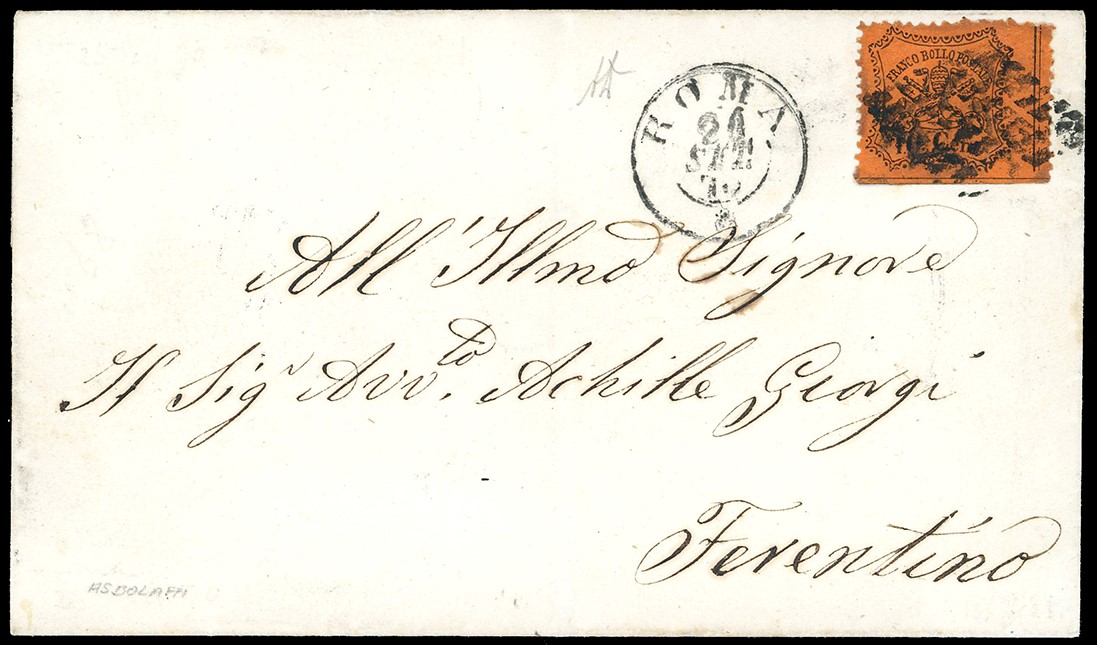 FRANCO BOLLO POSTALE
ROMA
SET
All' Illmo Signore
Il Sig Avv.to Achille Giorgi
Ferentino
AS.BOLAFFI